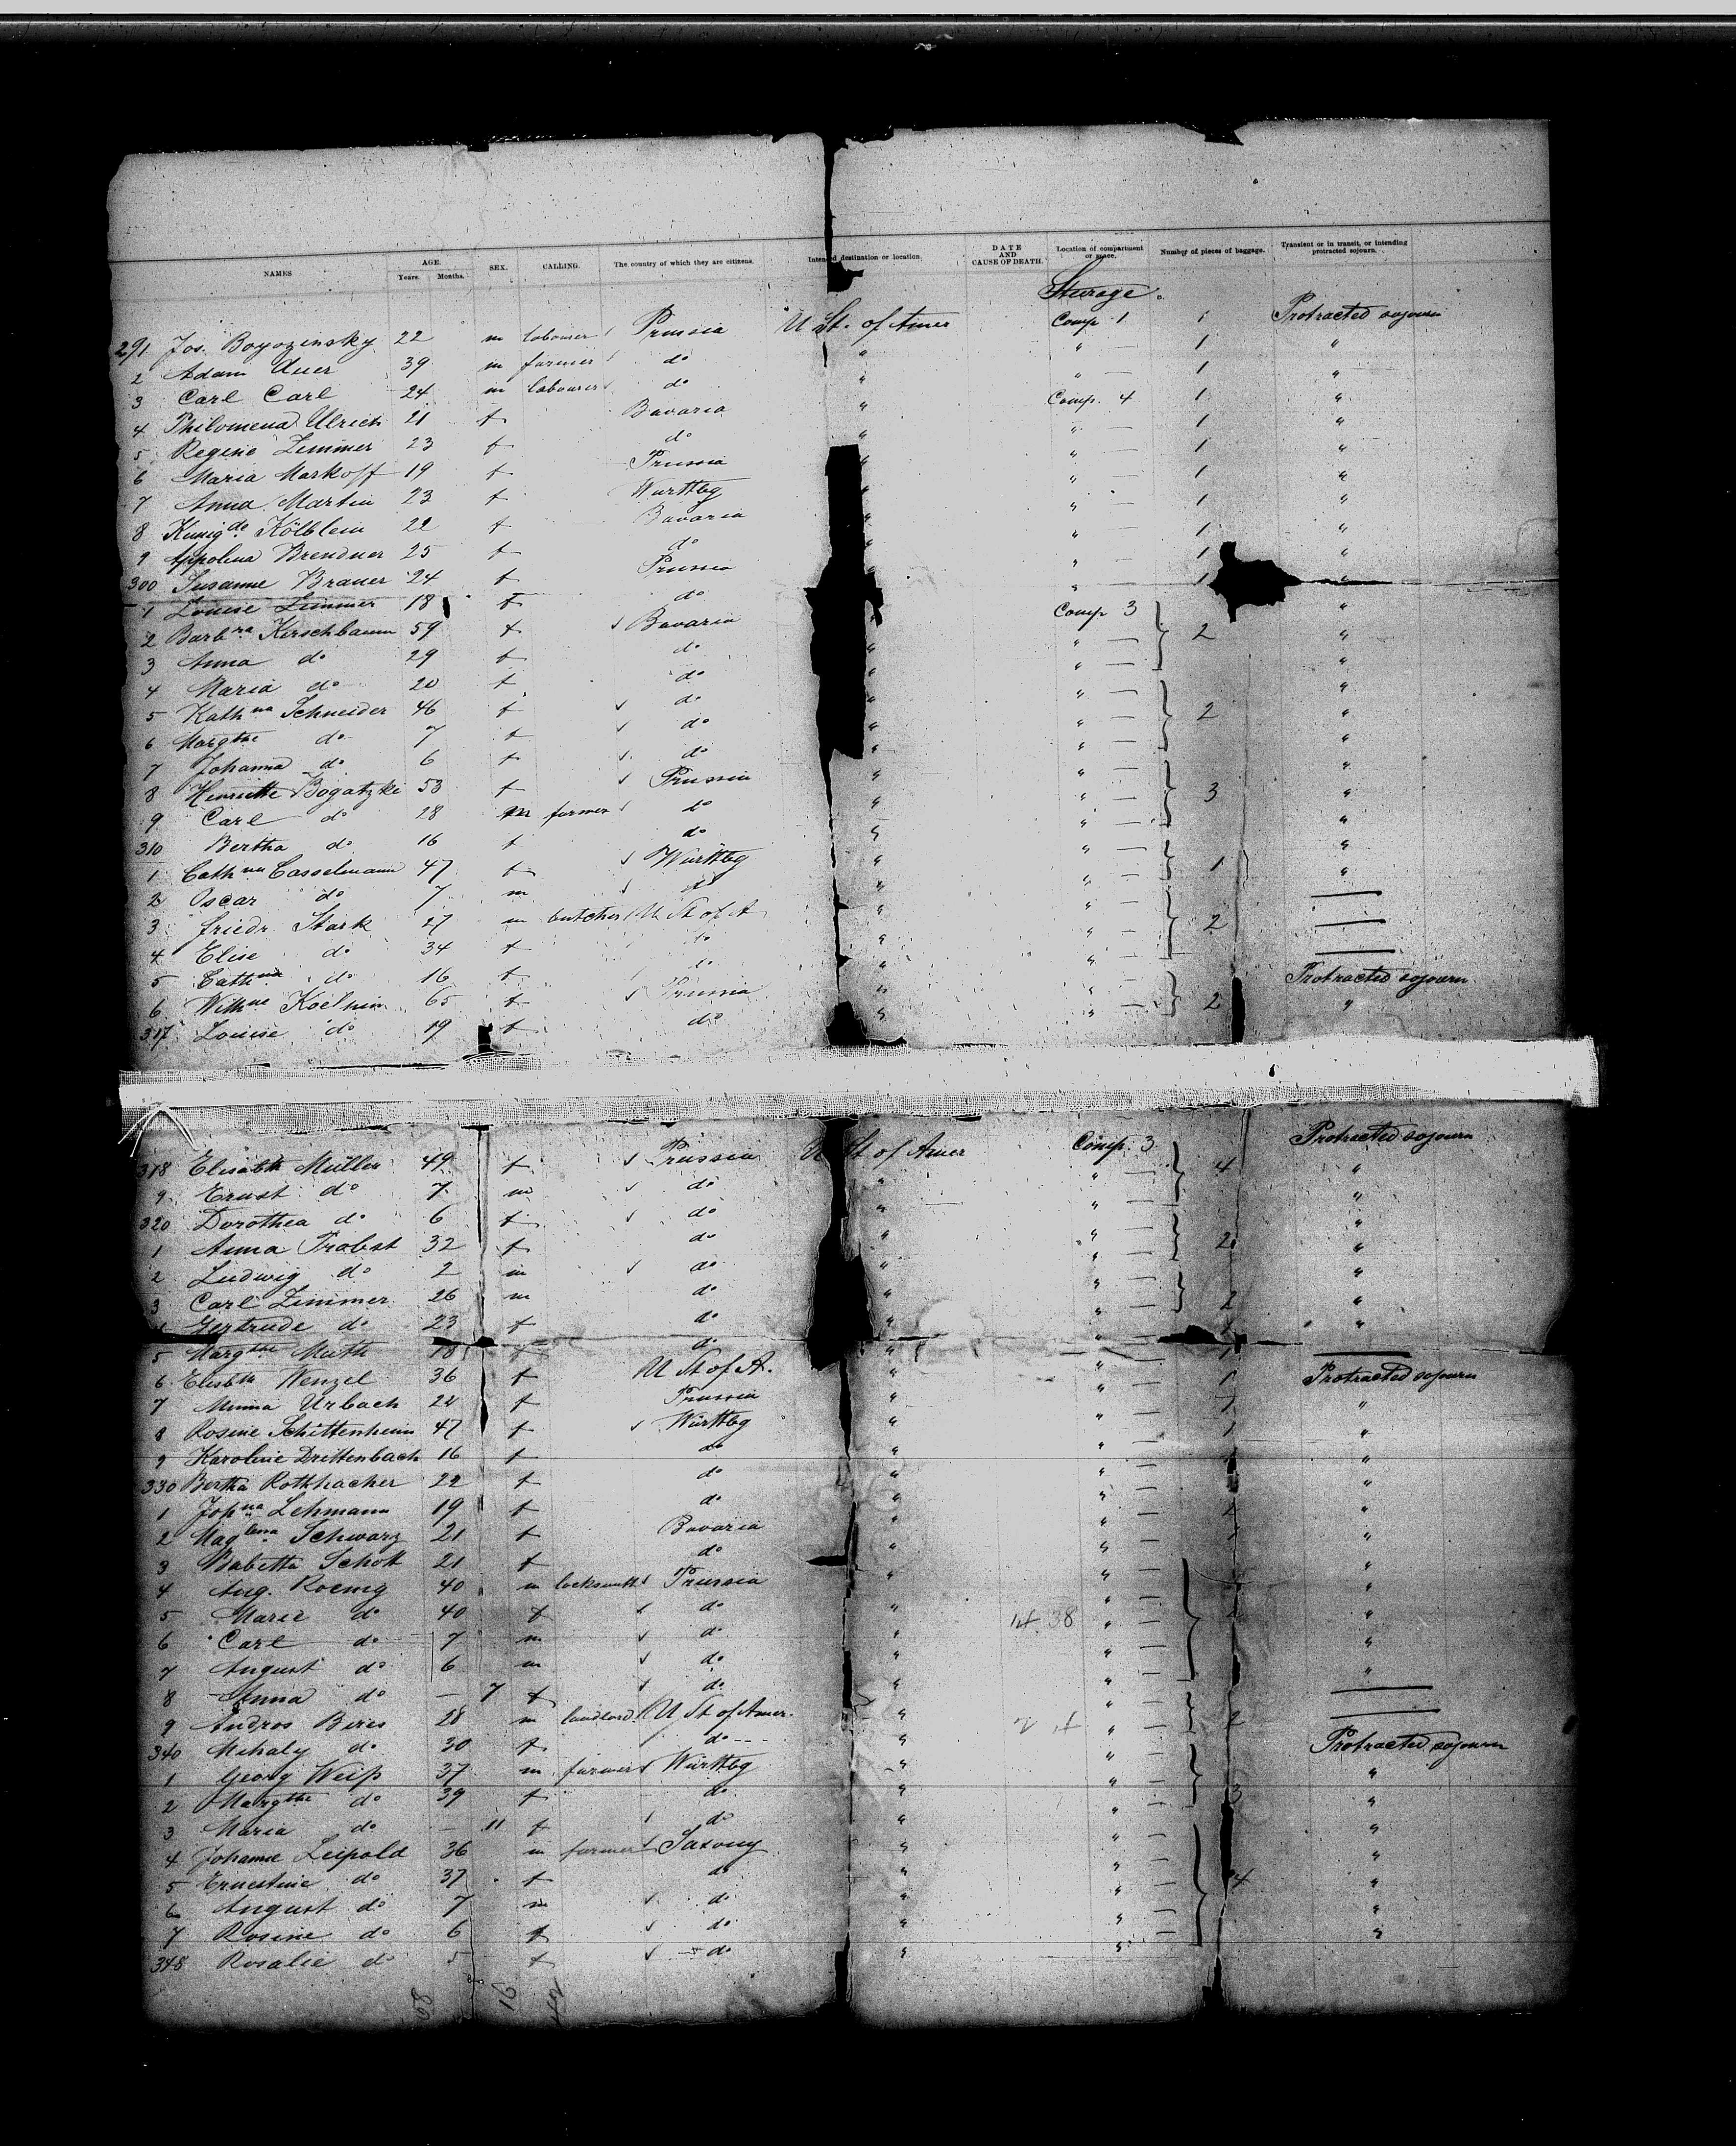 NAMES AGE. Years. Months. SEX. CALLING. The country of which they are citizens. Intended destination or location. DATE AND CAUSE OF DEATH. Location of compartment or space. Number of pieces of baggage. Transient or in transit, or intending protracted sojourn.
Sturage.
291 Jos. Boyozinsky 22 m labourer Prussia U St. of Amer Comp 1 1 Protracted sojourn
2 Adam Auer 39 m farmer do " " — 1 "
3 Carl Carl 24 m labourer do " " — 1 "
4 Philomena Ulrich 21 f Bavaria " Comp. 4 1 "
5 Regine Zimmer 23 f do " " — 1 "
6 Maria Markoff 19 f Prussia " " — 1 "
7 Anna Martin 23 f Wurttbg " " — 1 "
8 Kunigde Kölblein 22 f Bavaria " " — 1 "
9 Appolena Brendner 25 f do " " — 1 "
300 Susanne Brauer 24 f Prussia " " — 1 "
1 Louise Zimmer 18 f do " " — 1 "
2 Barbra Kerschbaum 59 f Bavaria " Comp 3 2 "
3 Anna do 29 f do " " — "
4 Maria do 20 f do " " — "
5 Kathna Schneider 46 f do " " — 2 "
6 Margthe do 7 f do " " — "
7 Johanna do 6 f do " " — "
8 Henriette Bogatzke 53 f Prussia " " — 3 "
9 Carl do 28 m farmer do " " — "
310 Bertha do 16 f do " " — "
1 Cathna Casselmann 47 f Württbg " " — 1 "
2 Oscar do 7 m do " " — "
3 Friedr. Stark 27 m butcher U St of A " " — 2 —
4 Elise do 34 f do " " — —
5 Cathna do 16 f do " " — —
6 Withne Koelnin 65 f Prussia " " — 2 Protracted sojourn
317 Louise do 19 f do " " — "
318 Elisabth Müller 49 f Prussia U St of Amer Comp. 3 4 Protracted sojourn
9 Ernst do 7 m do " " — "
320 Dorothea do 6 f do " " — "
1 Anna Probst 32 f do " " — 2 "
2 Ludwig do 2 m do " " — "
3 Carl Zimmer 26 m do " " — 2 "
Gertrude do 23 f do " " — "
5 Margthe Muth 18 f do " " — 1 "
6 Elisbth Wenzel 36 f U St of A. " " — 1 —
7 Minna Urbach 22 f Prussia " " — 1 Protracted sojourn
8 Rosine Schittenhelm 47 f Württbg " " — 1 "
9 Karoline Drittenbach 16 f do " " — "
330 Bertha Rothhacher 22 f do " " — "
1 Johna Lehmann 19 f do " " — "
2 Maglena Schwarz 21 f Bavaria " " — "
3 Babetta Schott 21 f do " " — "
4 Aug. Roenig 40 m locksmith Prussia " " — "
5 Marie do 40 f do " 38 " — "
6 Carl do 7 m do " " — "
7 August do 6 m do " " — "
8 Anna do — 7 f do " " — "
9 Andros Beres 28 m landlord U St of Amer. " " — 2 —
340 Mihaly do 30 f do " " — —
1 Georg Weiß 37 m farmer Württbg " " — 3 Protracted sojourn
2 Margthe do 39 f do " " — "
3 Maria do — 11 f do " " — "
4 Johanne Leipold 36 m farmer Saxony " " — 4 "
5 Ernestine do 37 f do " " — "
6 August do 7 m do " " — "
7 Rosine do 6 f do " " — "
348 Rosalie do 5 f do " " "
16